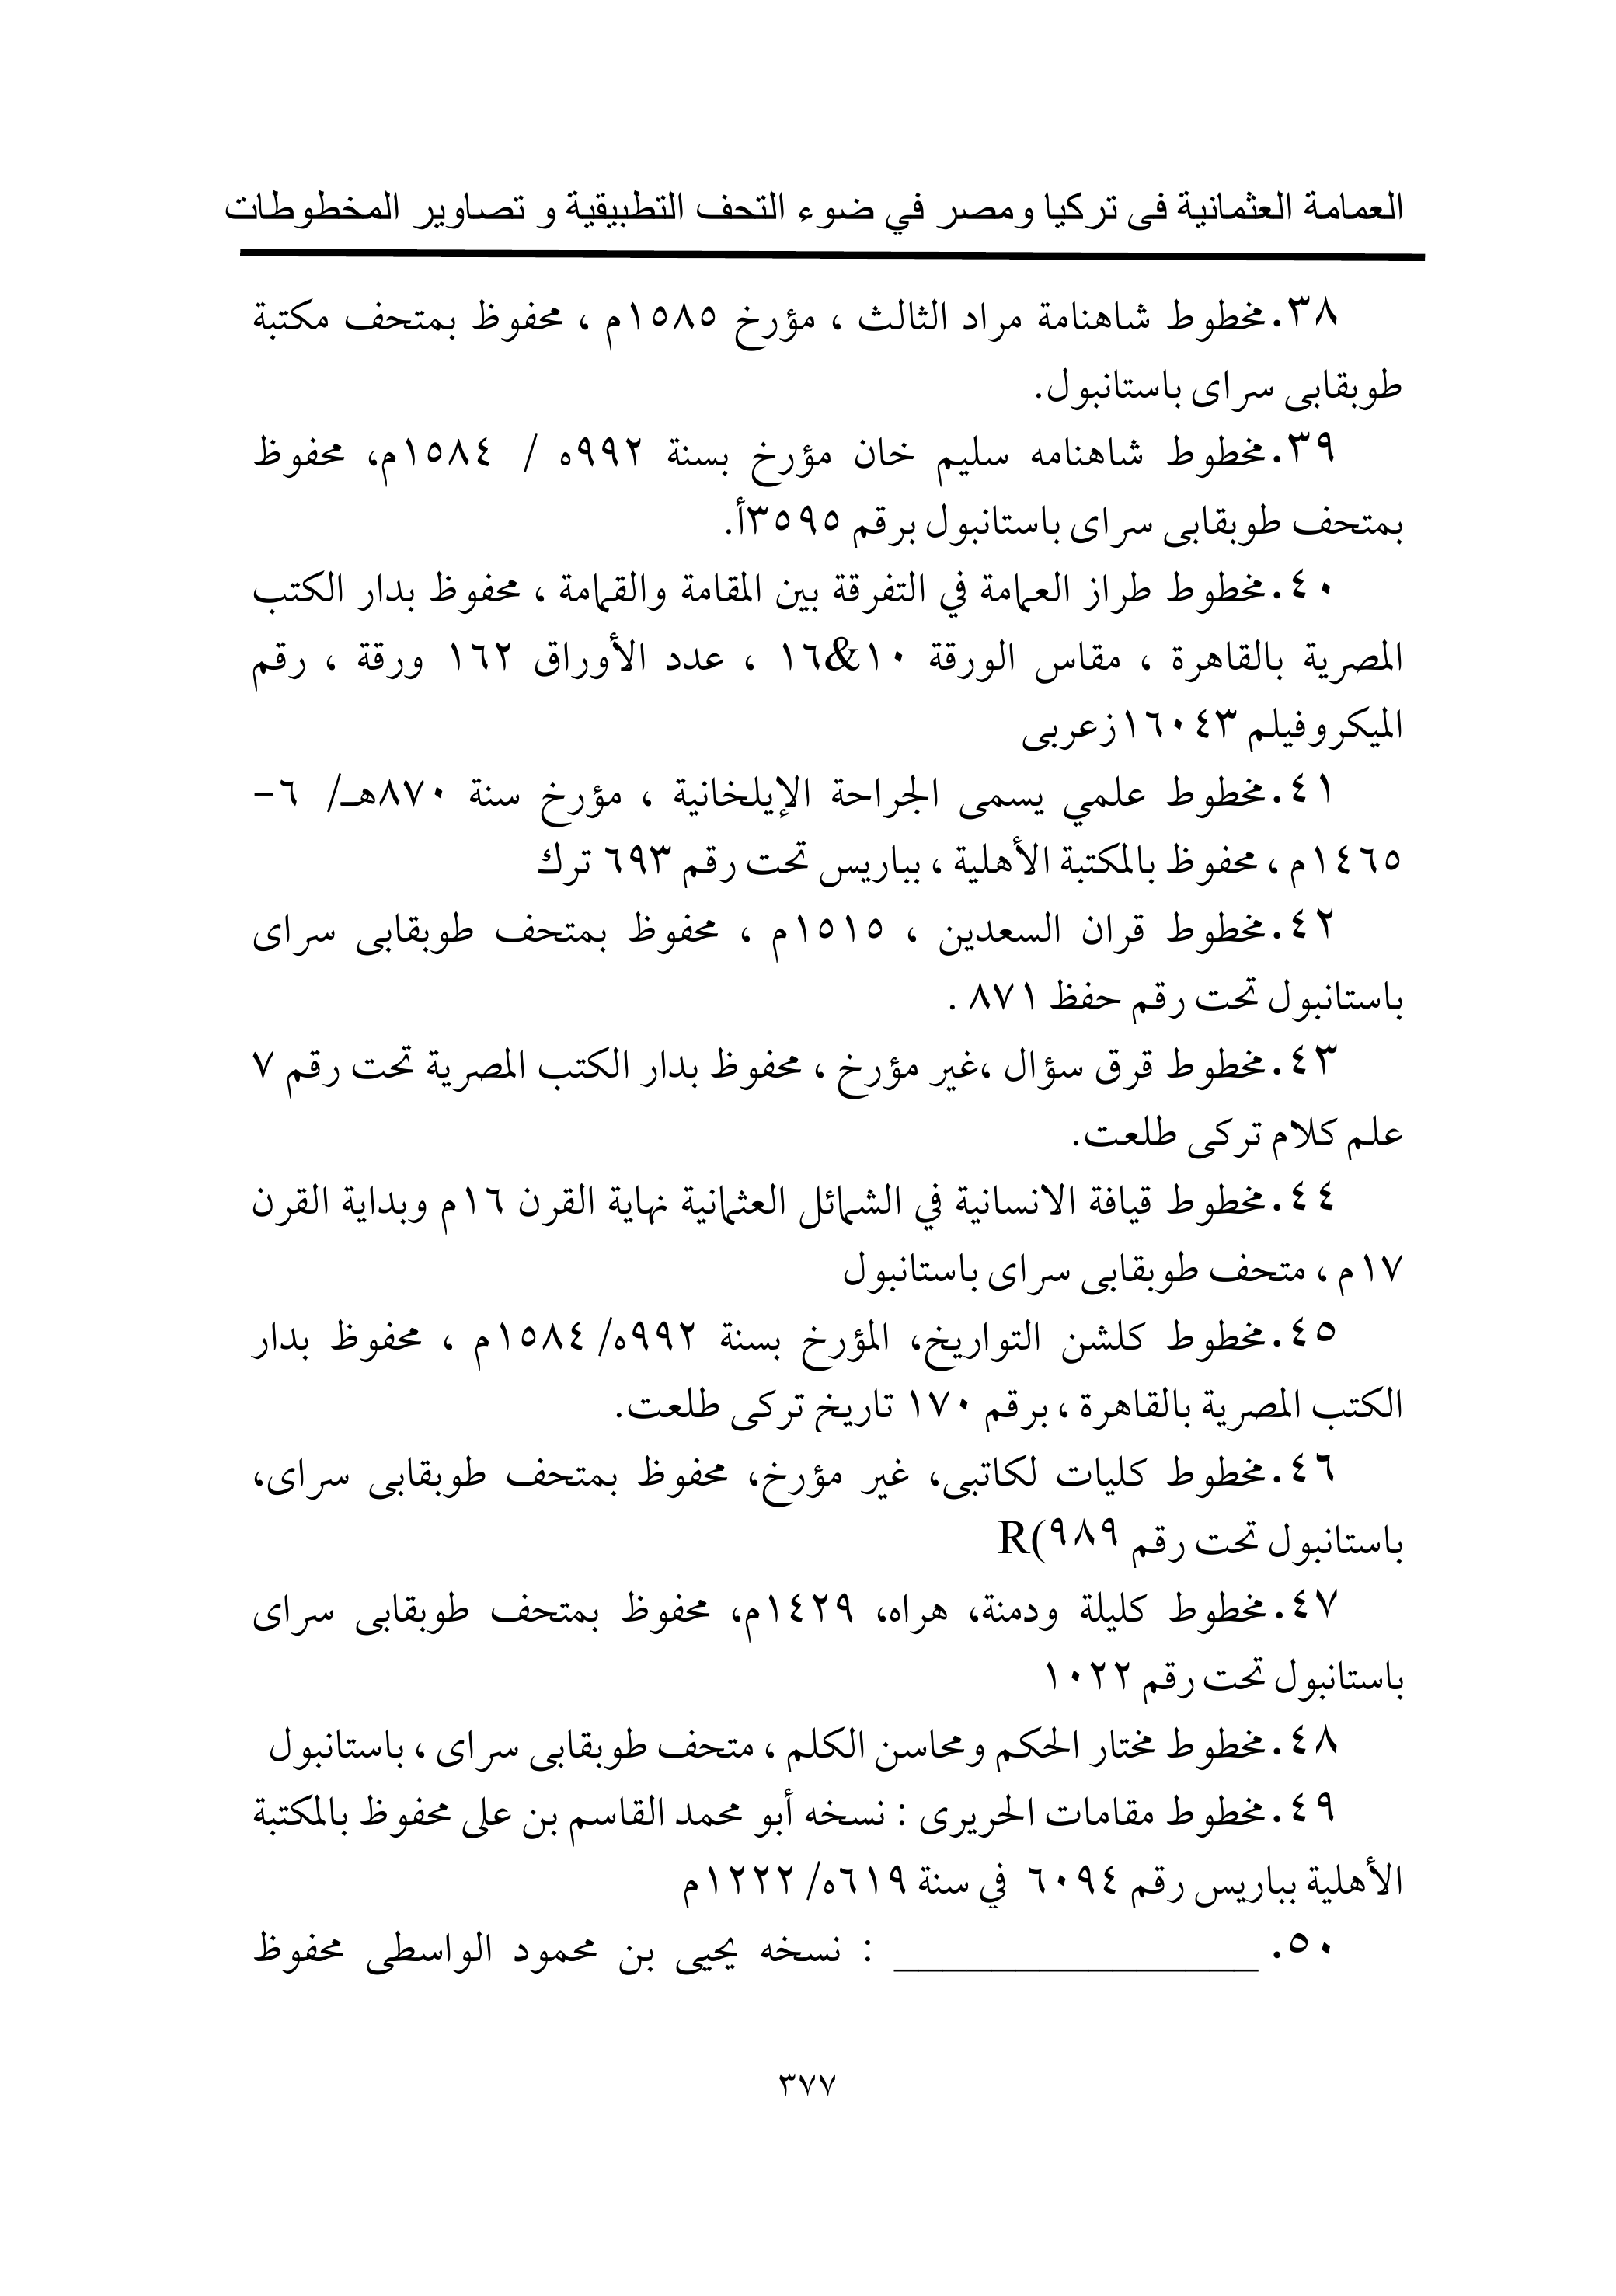 العمامة العثمانية فى تركيا ومصر في ضوء التحف التطبيقية و تصاوير المخطوطات
٣٨. مخطوط شاهنامة مراد الثالث ، مؤرخ ١٥٨٥م ، محفوظ بمتحف مكتبة
طوبقابى سراى باستانبول.
٣٩. مخطوط شاهنامه سليم خان مؤرخ بسنة ٩٩٢ه / ١٥٨٤م، محفوظ
بمتحف طوبقابى سراى باستانبول برقم ٣٥٩٥أ.
٤٠. مخطوط طراز العمامة في التفرقة بين المقامة والقمامة ، محفوظ بدار الكتب
المصرية بالقاهرة ، مقاس الورقة ١٠&١٦ ، عدد الأوراق ١٦٢ ورقة ، رقم
الميكروفيلم ١٦٠٤٣زعربى
٤١. مخطوط علمي يسمى الجراحة الإيلخانية ، مؤرخ سنة ٨٧٠هـ/ ٦-
١٤٦٥م ، محفوظ بالمكتبة الأهلية ، بباريس تحت رقم ٦٩٣ ترك
٤٢. مخطوط قران السعدين ، ١٥١٥م ، محفوظ بمتحف طوبقابى سراى
باستانبول تحت رقم حفظ ٨٧١ .
٤٣. مخطوط قرق سؤال ،غير مؤرخ ، محفوظ بدار الكتب المصرية تحت رقم ٧
علم كلام تركى طلعت.
٤٤. مخطوط قيافة الانسانية في الشمائل العثمانية نهاية القرن ١٦م وبداية القرن
١٧م ، متحف طوبقابى سراى باستانبول
٤٥. مخطوط كلشن التواريخ، المؤرخ بسنة ٩٩٢ه/ ١٥٨٤م ، محفوظ بدار
الكتب المصرية بالقاهرة ، برقم ١٧٠ تاريخ تركى طلعت.
٤٦. مخطوط كليات لكاتبى، غير مؤرخ، محفوظ بمتحف طوبقابى سراى،
باستانبول تحت رقم ٩٨٩)R
٤٧. مخطوط كليلة ودمنة، هراه، ١٤٢٩م، محفوظ بمتحف طوبقابى سراى
باستانبول تحت رقم ١٠٢٢
٤٨. مخطوط مختار الحكم ومحاسن الكلم ، متحف طوبقابى سراى ، باستانبول
٤٩. مخطوط مقامات الحريرى : نسخه أبو محمد القاسم بن على محفوظ بالمكتبة
الأهلية بباريس رقم ٦٠٩٤ في سنة ٦١٩ه/ ١٢٢٢م
٥٠. ________________ : نسخه يحيى بن محمود الواسطى محفوظ
٣٧٧